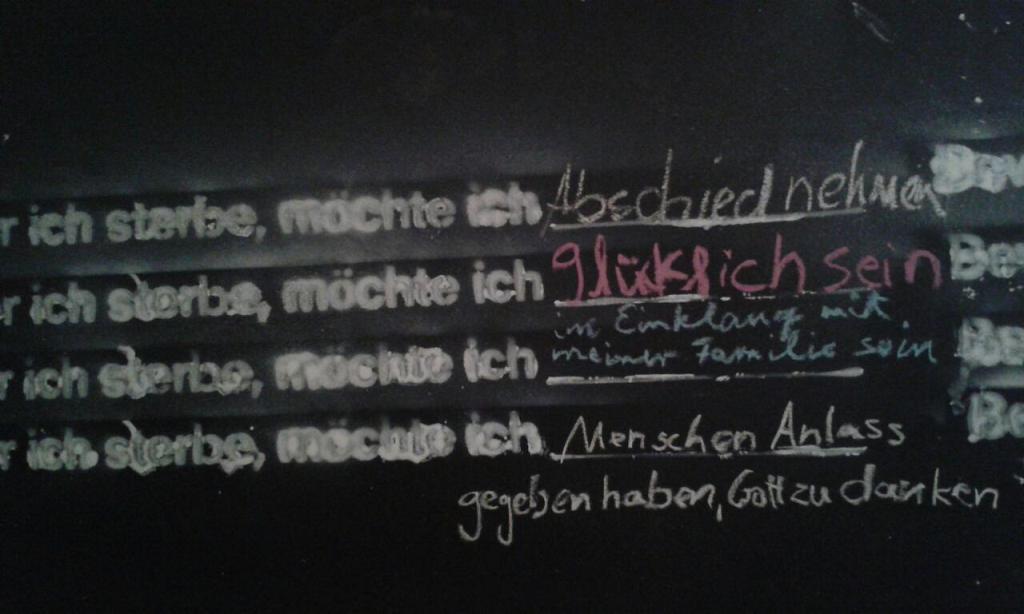 r ich sterbe, möchte ich Abschied nehmen Bev
r ich sterbe, möchte ich glüklich sein Bev
im Einklang mit
r ich sterbe, möchte ich meiner Familie sein Be
r ich sterbe, möchte ich Menschen Anlass Be
gegeben haben, Gott zu danken